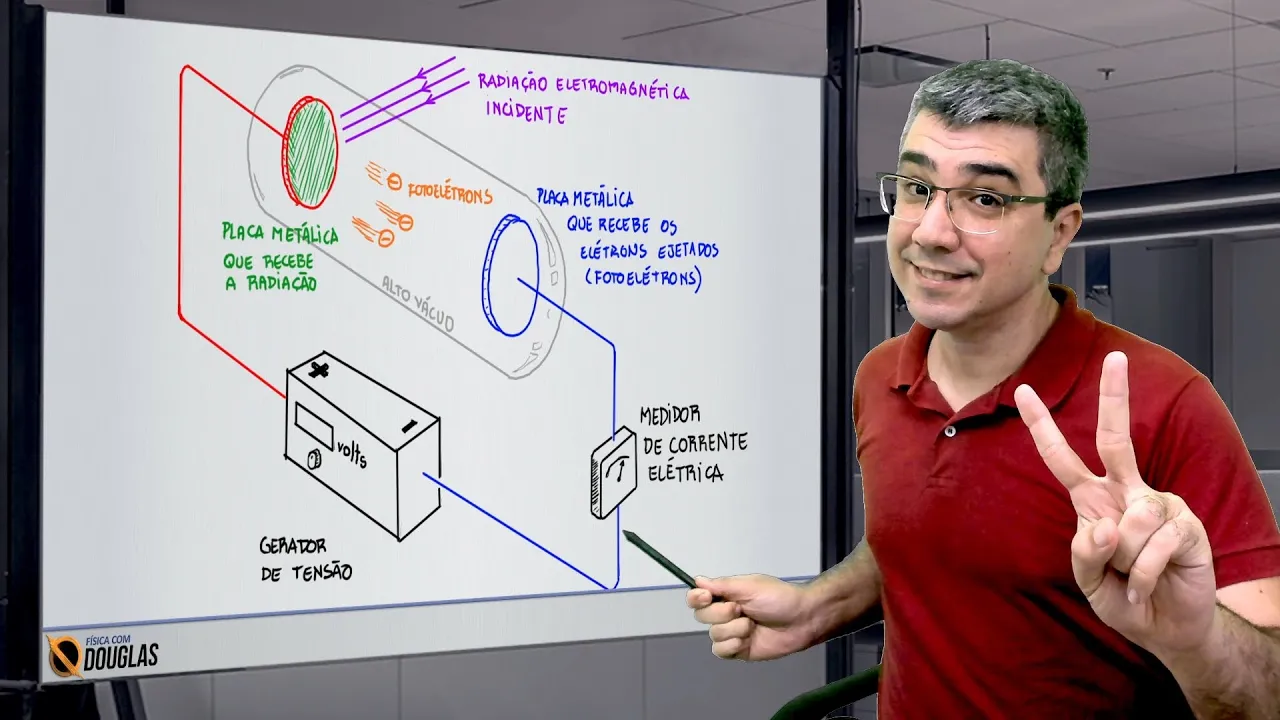 RADIAÇÃO ELETROMAGNÉTICA
INCIDENTE
FOTOELÉTRONS
PLACA METÁLICA
QUE RECEBE OS
ELÉTRONS EJETADOS
(FOTOELÉTRONS)
PLACA METÁLICA
QUE RECEBE
A RADIAÇÃO
ALTO VÁCUO
+
-
volts
MEDIDOR
DE CORRENTE
ELÉTRICA
GERADOR
DE TENSÃO
FÍSICA COM
DOUGLAS